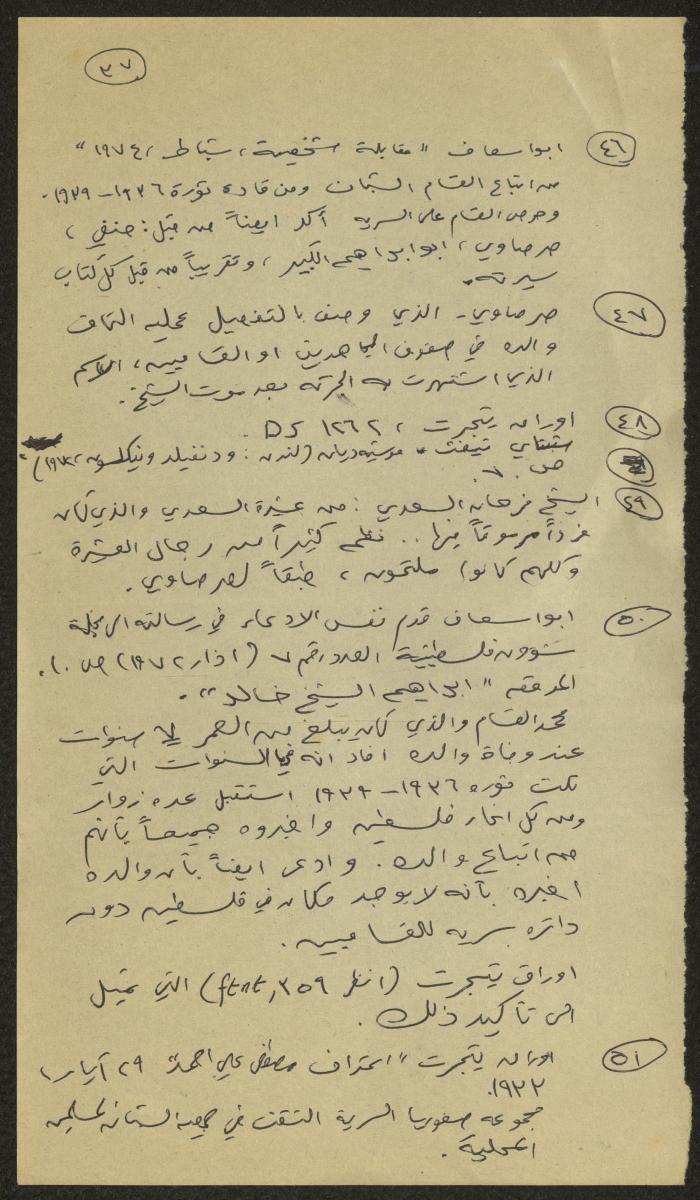 ٣٧
٤٦ ابو اسعاف "مقابلة شخصية، شباط، ١٩٧٤"
من اتباع القسام الشبان ومن قادة ثورة ١٩٣٦-١٩٣٩.
وحرص القسام على السرية أكد ايضاً من قبل: حنفي،
صرصاوي، ابو ابراهيم الكبير، وتقريباً من قبل كل كتاب
سيرته.
٤٧ صرصاوي- الذي وصف بالتفصيل عملية التحاق
والده في صفوف المجاهدين او القساميين، الاسم
الذي اشتهرت به الحركة بعد موت الشيخ.
٤٨ اوراق يتجرت، ١٢٦٢ DS.
شبتاي تيفث، موشيه ديان (لندن: ودنفيلد ونيكلسون، ١٩٧٢)"
ص ٧٠
٤٩ الشيخ فرحان السعدي: من عشيرة السعدي والذي كان
فرداً مرموقاً فيها.. نظم كثيراً من رجال العشيرة
وكلهم كانوا ملتحون، طبقاً لصرصاوي.
٥٠ ابو اسعاف قدم نفس الادعاء في رسالته الى مجلة
شؤون فلسطينية العدد رقم ٧ (اذار ١٩٧٢) ص ١٠.
المرفقه "ابراهيم الشيخ خالد".
محمد القسام والذي كان يبلغ من العمر ٧ سنوات
عند وفاة والده افاد انه في السنوات التي
تلت ثوره ١٩٣٦-١٩٣٩ استقبل عده زوار
ومن كل انحاء فلسطين واخبروه جميعاً بأنهم
من اتباع والده. وادعى ايضاً بأن والده
اخبره بأنه لا يوجد مكان في فلسطين دون
دائره سرية للقساميين.
اوراق يتجرت (انظر ٣٥٩, ftnt) التي تميل
الى تأكيد ذلك.
٥١ اوراق يتجرت، "اعتراف مصطفى علي احمد" ٢٩ آيار،
١٩٣٣.
مجموعه صفوريا السرية التقت في جمعية الشبان المسلمين
المحلية.